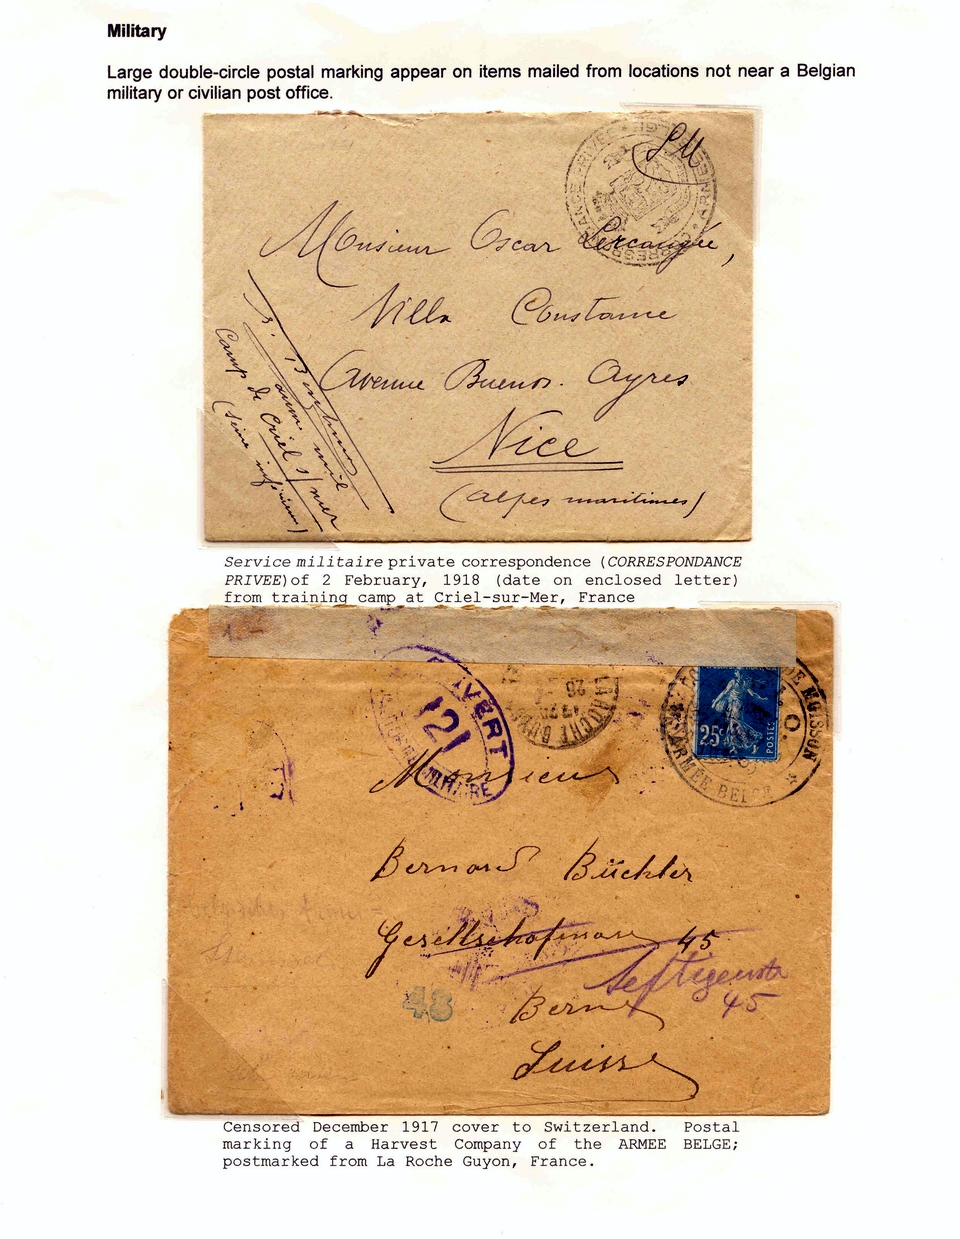 Military
Large double-circle postal marking appear on items mailed from locations not near a Belgian
military or civilian post office.
PRIVEE
SM
Monsieur Oscar
Villa Constance
Avenue Buenos. Ayres
Nice
(Alpes maritimes)
aum. mil
Camp de Criel s/mer
(Seine inférieure)
Service militaire private correspondence (CORRESPONDANCE
PRIVEE)of 2 February, 1918 (date on enclosed letter)
from training camp at Criel-sur-Mer, France
OUVERT
121
MILITAIRE
LA ROCHE GUYON
DE MOISSON
ARMEE BELGE
25c
POSTES
Monsieur
Bernard Büchler
45
Seftigenstr
45
Berne
Suisse
48
Censored December 1917 cover to Switzerland. Postal
marking of a Harvest Company of the ARMEE BELGE;
postmarked from La Roche Guyon, France.